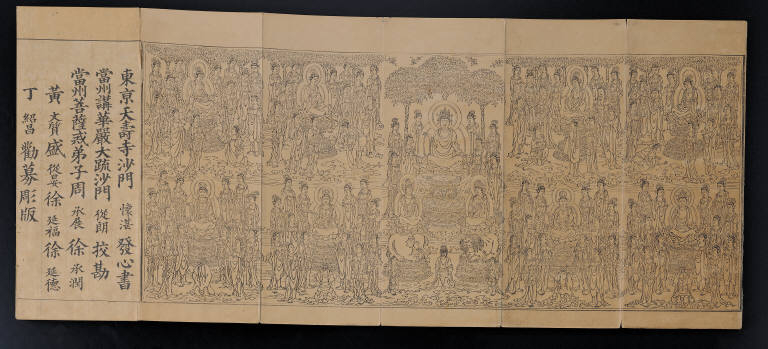 東京天壽寺沙門 懷湛 發心書
當州講華嚴大疏沙門 從朗 挍勘
當州菩薩戒弟子周 承展 徐 承潤
黃 文質 盛 從晏 徐 延福 徐 延德
丁 紹昌 勸募彫版